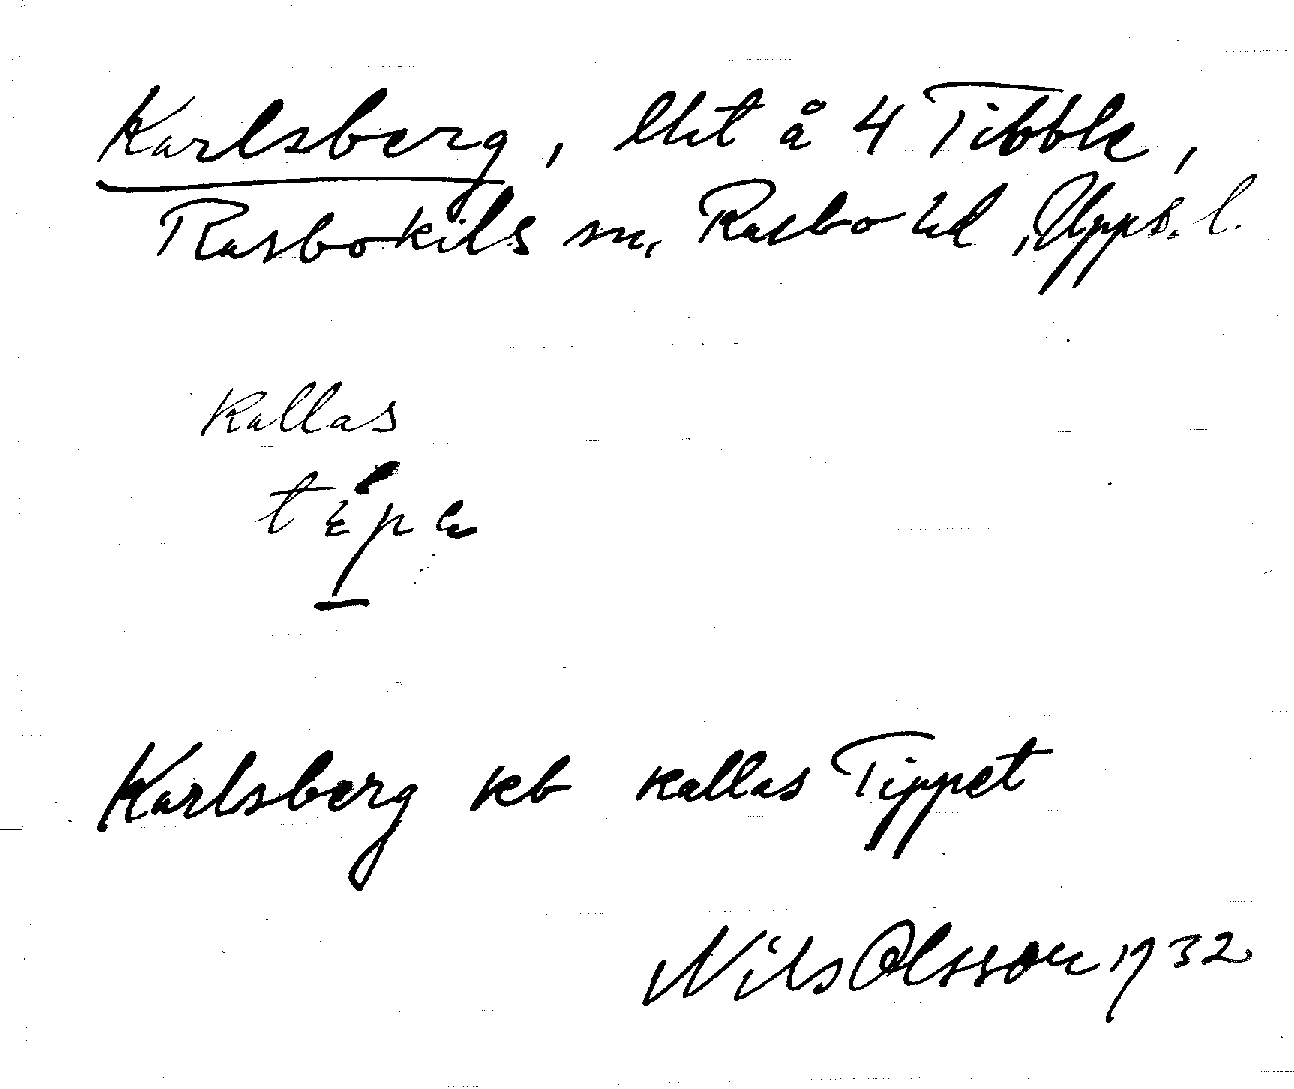 Karlsberg, lht å 4 Tibble,
Rasbokils sn, Rasbo hd, Upps. l.
kallas
Karlsberg kb kallas Tippet
Nils Olsson 1932